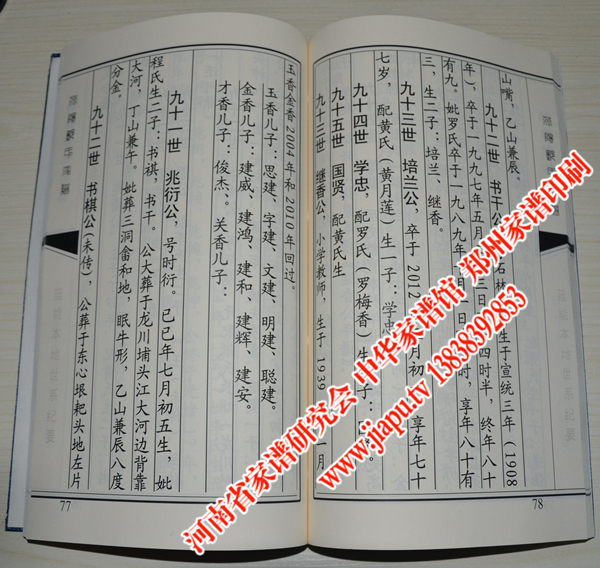 玉香金香2004年和2010年回过。
玉香儿子：思建、宇建、文建、明建、聪建。
金香儿子：建威、建鸿、建和、建辉、建安。
才香儿子：俊杰、。关香儿子：
九十一世 兆衍公，号时衍。己巳年七月初五生，妣
程氏生二子：书棋，书干。公大葬于龙川埔头江大河边背靠
大河，丁山兼午。妣葬三洞畲和地，眠牛形，乙山兼辰八度
分金。
九十二世 书棋公（未传），公葬于东心垠耙头地左片
77
山嘴，乙山兼辰。
九十二世 书干公 若林 生于宣统三年（1908
年），卒于一九九七年五月 三日 四时半，终年八十
有九。妣罗氏卒于一九八九年 月 日 时，享年八十有
三，生二子：培兰、继香。
九十三世 培兰公，卒于2012 月初 享年七十
七岁，配黄氏（黄月莲）生一子：学忠
九十四世 学忠，配罗氏（罗梅香）生 子：
九十五世 国贤，配黄氏生
九十三世 继香公，小学教师，生于1939 一月
78
河南省家谱研究会 中华家谱馆 郑州家谱印刷
www.jiapu.tv 13838392853